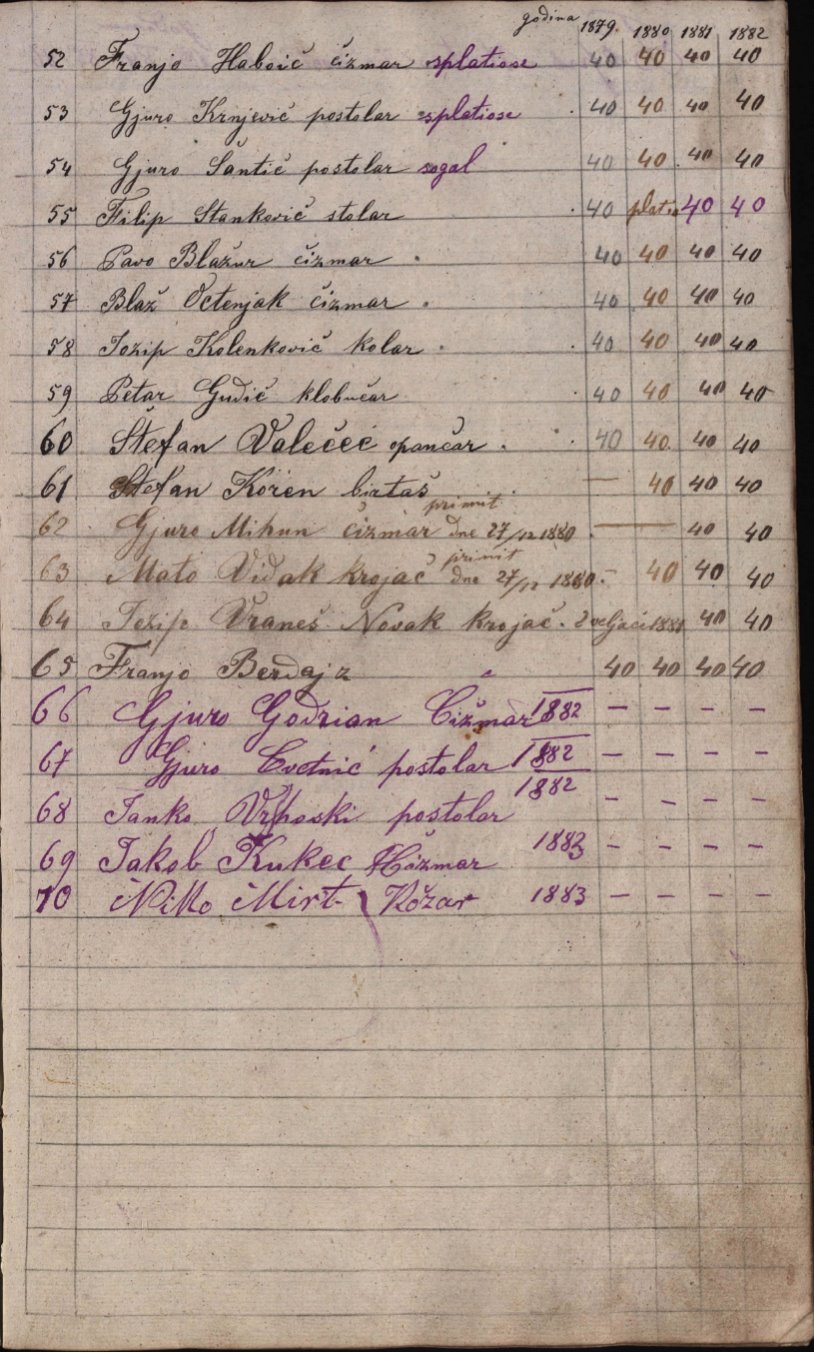 godina 1879. 1880 1881 1882
52 Franjo Haboić čizmar splatiose 40 40 40 40
53 Gjuro Krnjević postolar splatiose 40 40 40 40
54 Gjuro Šantić postolar sogal 40 40 40 40
55 Filip Stanković stolar 40 platio 40 40
56 Pavo Blažur čizmar 40 40 40 40
57 Blaž Octenjak čizmar 40 40 40 40
58 Jozip Kolenković kolar 40 40 40 40
59 Petar Gudić klobučar 40 40 40 40
60 Štefan Valečeć opančar 40 40 40 40
61 Stefan Koren birtaš — 40 40 40
62 Gjuro Mihun čizmar primit dne 27/12 1880 — 40 40
63 Mato Vidak krojač primit dne 27/12 1880 – 40 40 40
64 Jozip Vraneš Novak krojač. 2 veljači 1881 40 40
65 Franjo Berdajz 40 40 40 40
66 Gjuro Godrian Čižmar 1882 – – – –
67 Gjuro Cvetnić postolar 1882 – – – –
68 Janko Vrhoski postolar 1882 – – – –
69 Jakob Kukec Čizmar 1883 – – – –
70 Niko Mirt Kožar 1883 – – – –